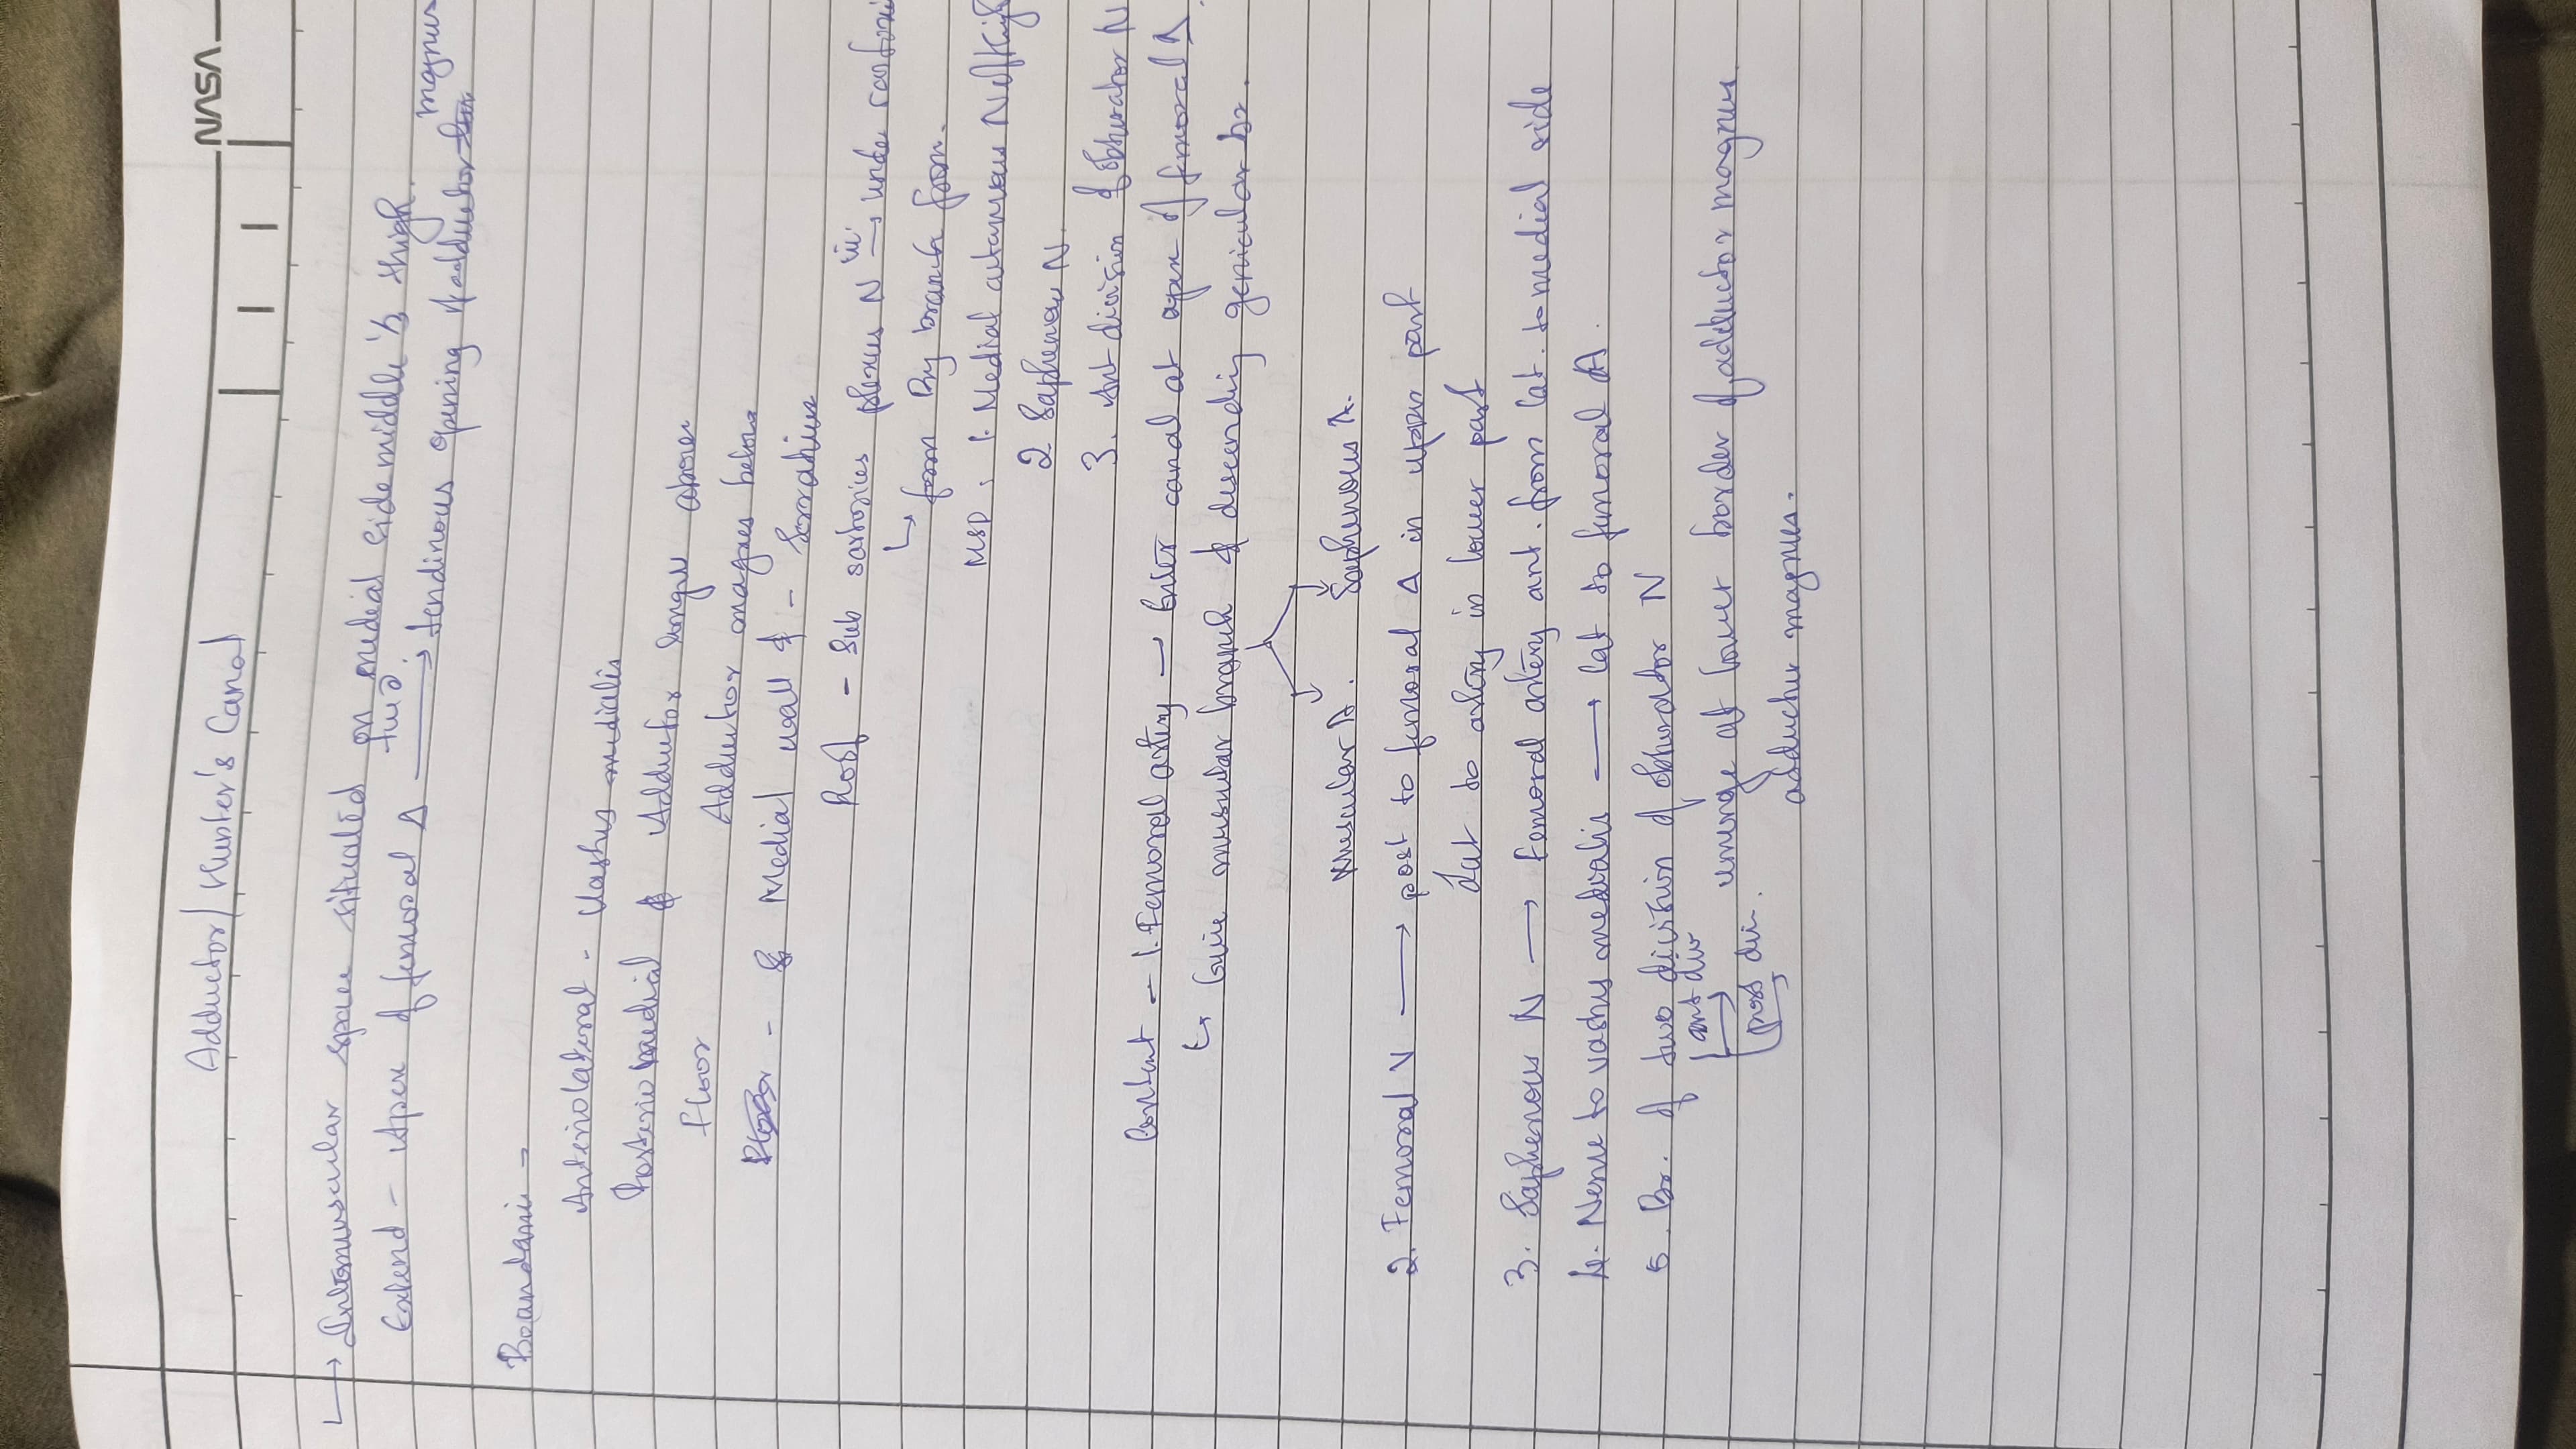 NASA
Adductor/ Hunter's Canal
→ Intermuscular space situated on medial side middle 1/3 thigh.
Extend - Apex of femoral Δ → tendinous opening of adductor magnus
Boundarie -
Anteriolateral - Vastus medialis
Posteriomedial & Adductor longus above
Floor Adductor magnes below
& Medial wall & - Sorratius
Roof - Sub sartories plexus N → unde
↳ form By branch from.
MSD: 1. Medial cutaneous N of thigh
2 Saphenous N.
3. Ant division of obturator N
Content - 1. Femoral artery → Enter canal at apex of femoral Δ.
↳ Give musular branch & descending genicular br.
Muscular A. Saphenous A.
2. Femoral V → post to femoral A in upper part
Lat to artery in lower part
3. Saphenous N → Femoral artery ant. from lat. to medial side
4. Nerve to vastus medialis → lat to femoral A.
5. Br. of two division of obturator N
ant div → emerge at lower border of adductor magnus.
post div. adductur magnes.